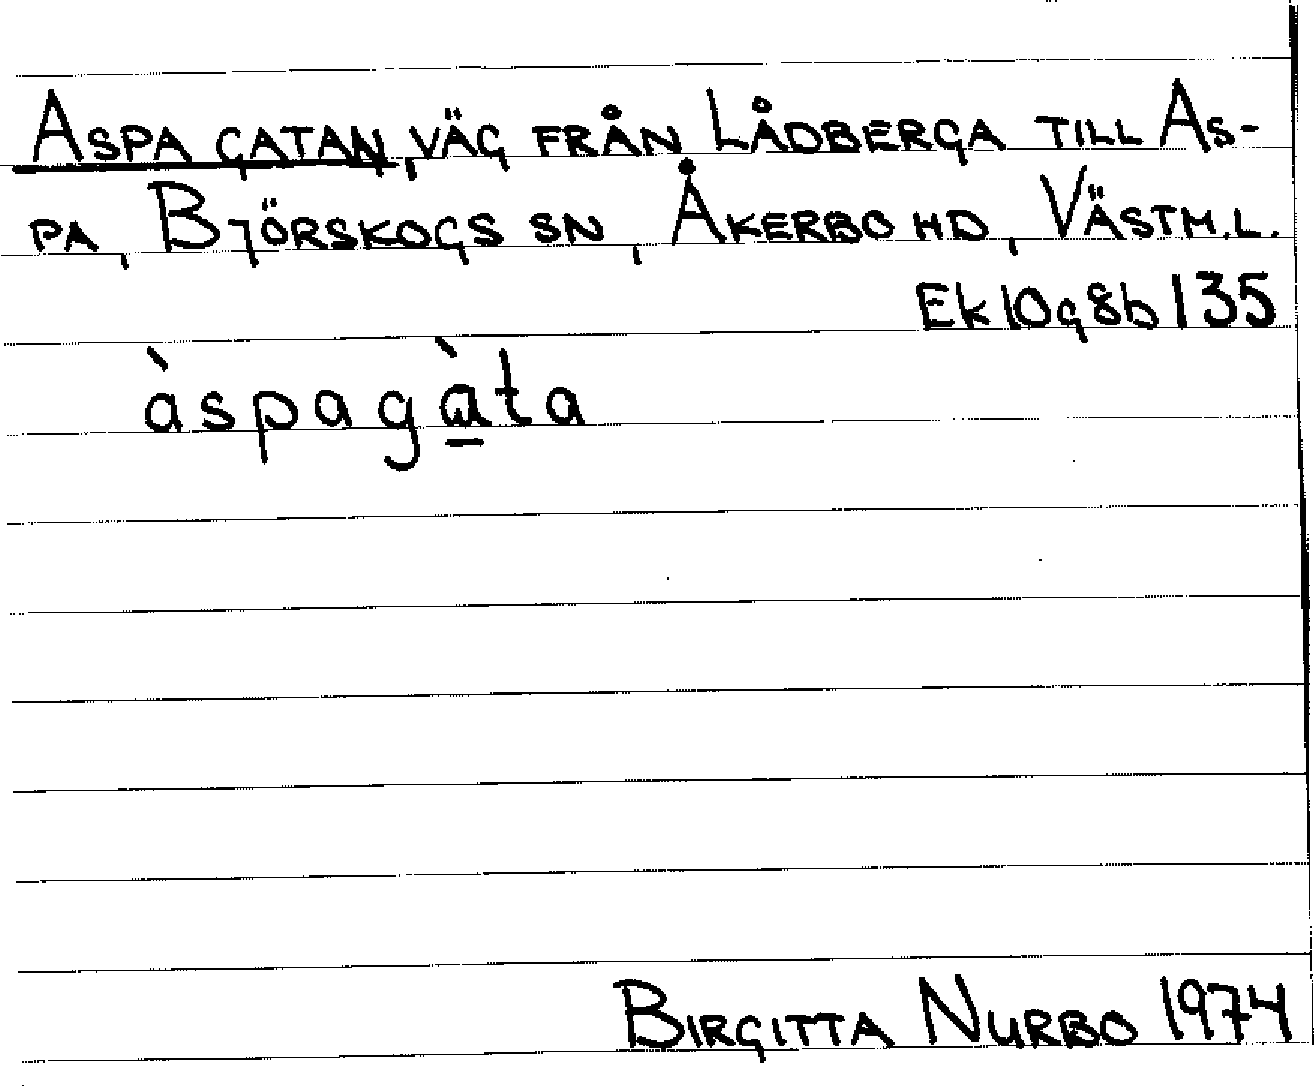 ASPA GATAN, VÄG FRÅN LÅDBERGA TILL AS-
PA, BJÖRSKOGS SN, ÅKERBO HD, VÄSTM.L.
Ek 10g8b 135
àspagàta
BIRGITTA NURBO 1974